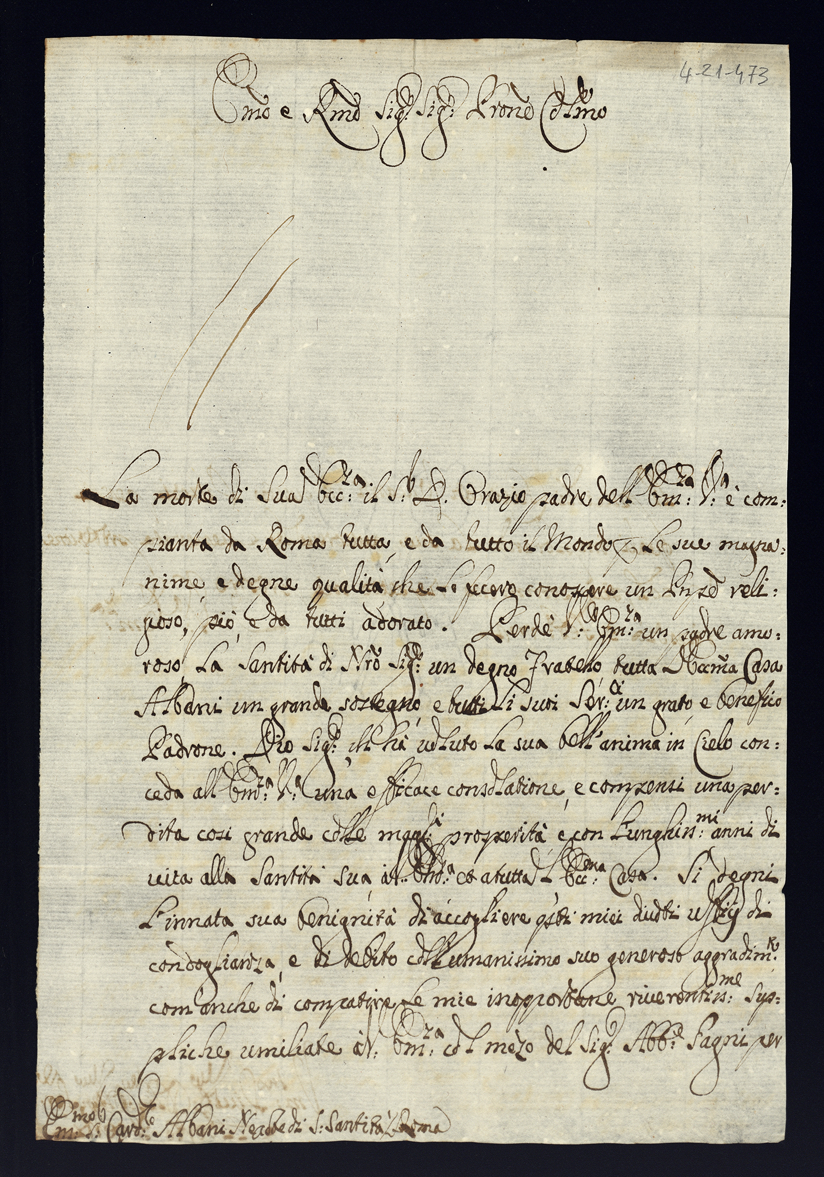 4-21-473
Em̃o e Rm̃o Sig.r Sig.r Prone Colm̃o
La morte di Sua Ecc.za il S.r D. Orazio padre dell'Em.za V.a è com:
pianta da Roma tutta, e da tutto il Mondo p le sue magna:
nime, e degne qualità che lo fecero conoscere un Pnpe reli:
gioso, pio, e da tutti adorato. Perde V. Em.za un padre amo:
roso, La Santità di Nrõ Sig.re un degno Fratello, tutta l'Eccm̃a Casa
Albani un grande sostegno, e tutti li suoi Ser.ri un grato, e benefico
Padrone. Dio Sig.re, ch'hà voluto la sua bell'anima in Cielo con:
ceda all'Em.za V.a una efficace consolatione, e compensi una per:
dita cosi grande colle magg.ri prosperità, e con lunghiss.mi anni di
vita alla Santità Sua, à V. Em.za et à tutta l'Ecc.ma Casa. Si degni
l'innata sua benignità di accogliere q̃sti miei divoti ufficij di
condoglianza, e di debito coll'umanissimo suo generoso aggradim.to
com'anche di compatire le mie inopportune riverentiss.me sup:
pliche umiliate à V. Em.za col mezo del Sig.r Abb.e Fagni per
Em.mo S.r Card.le Albani Nepote di S. Santità Roma